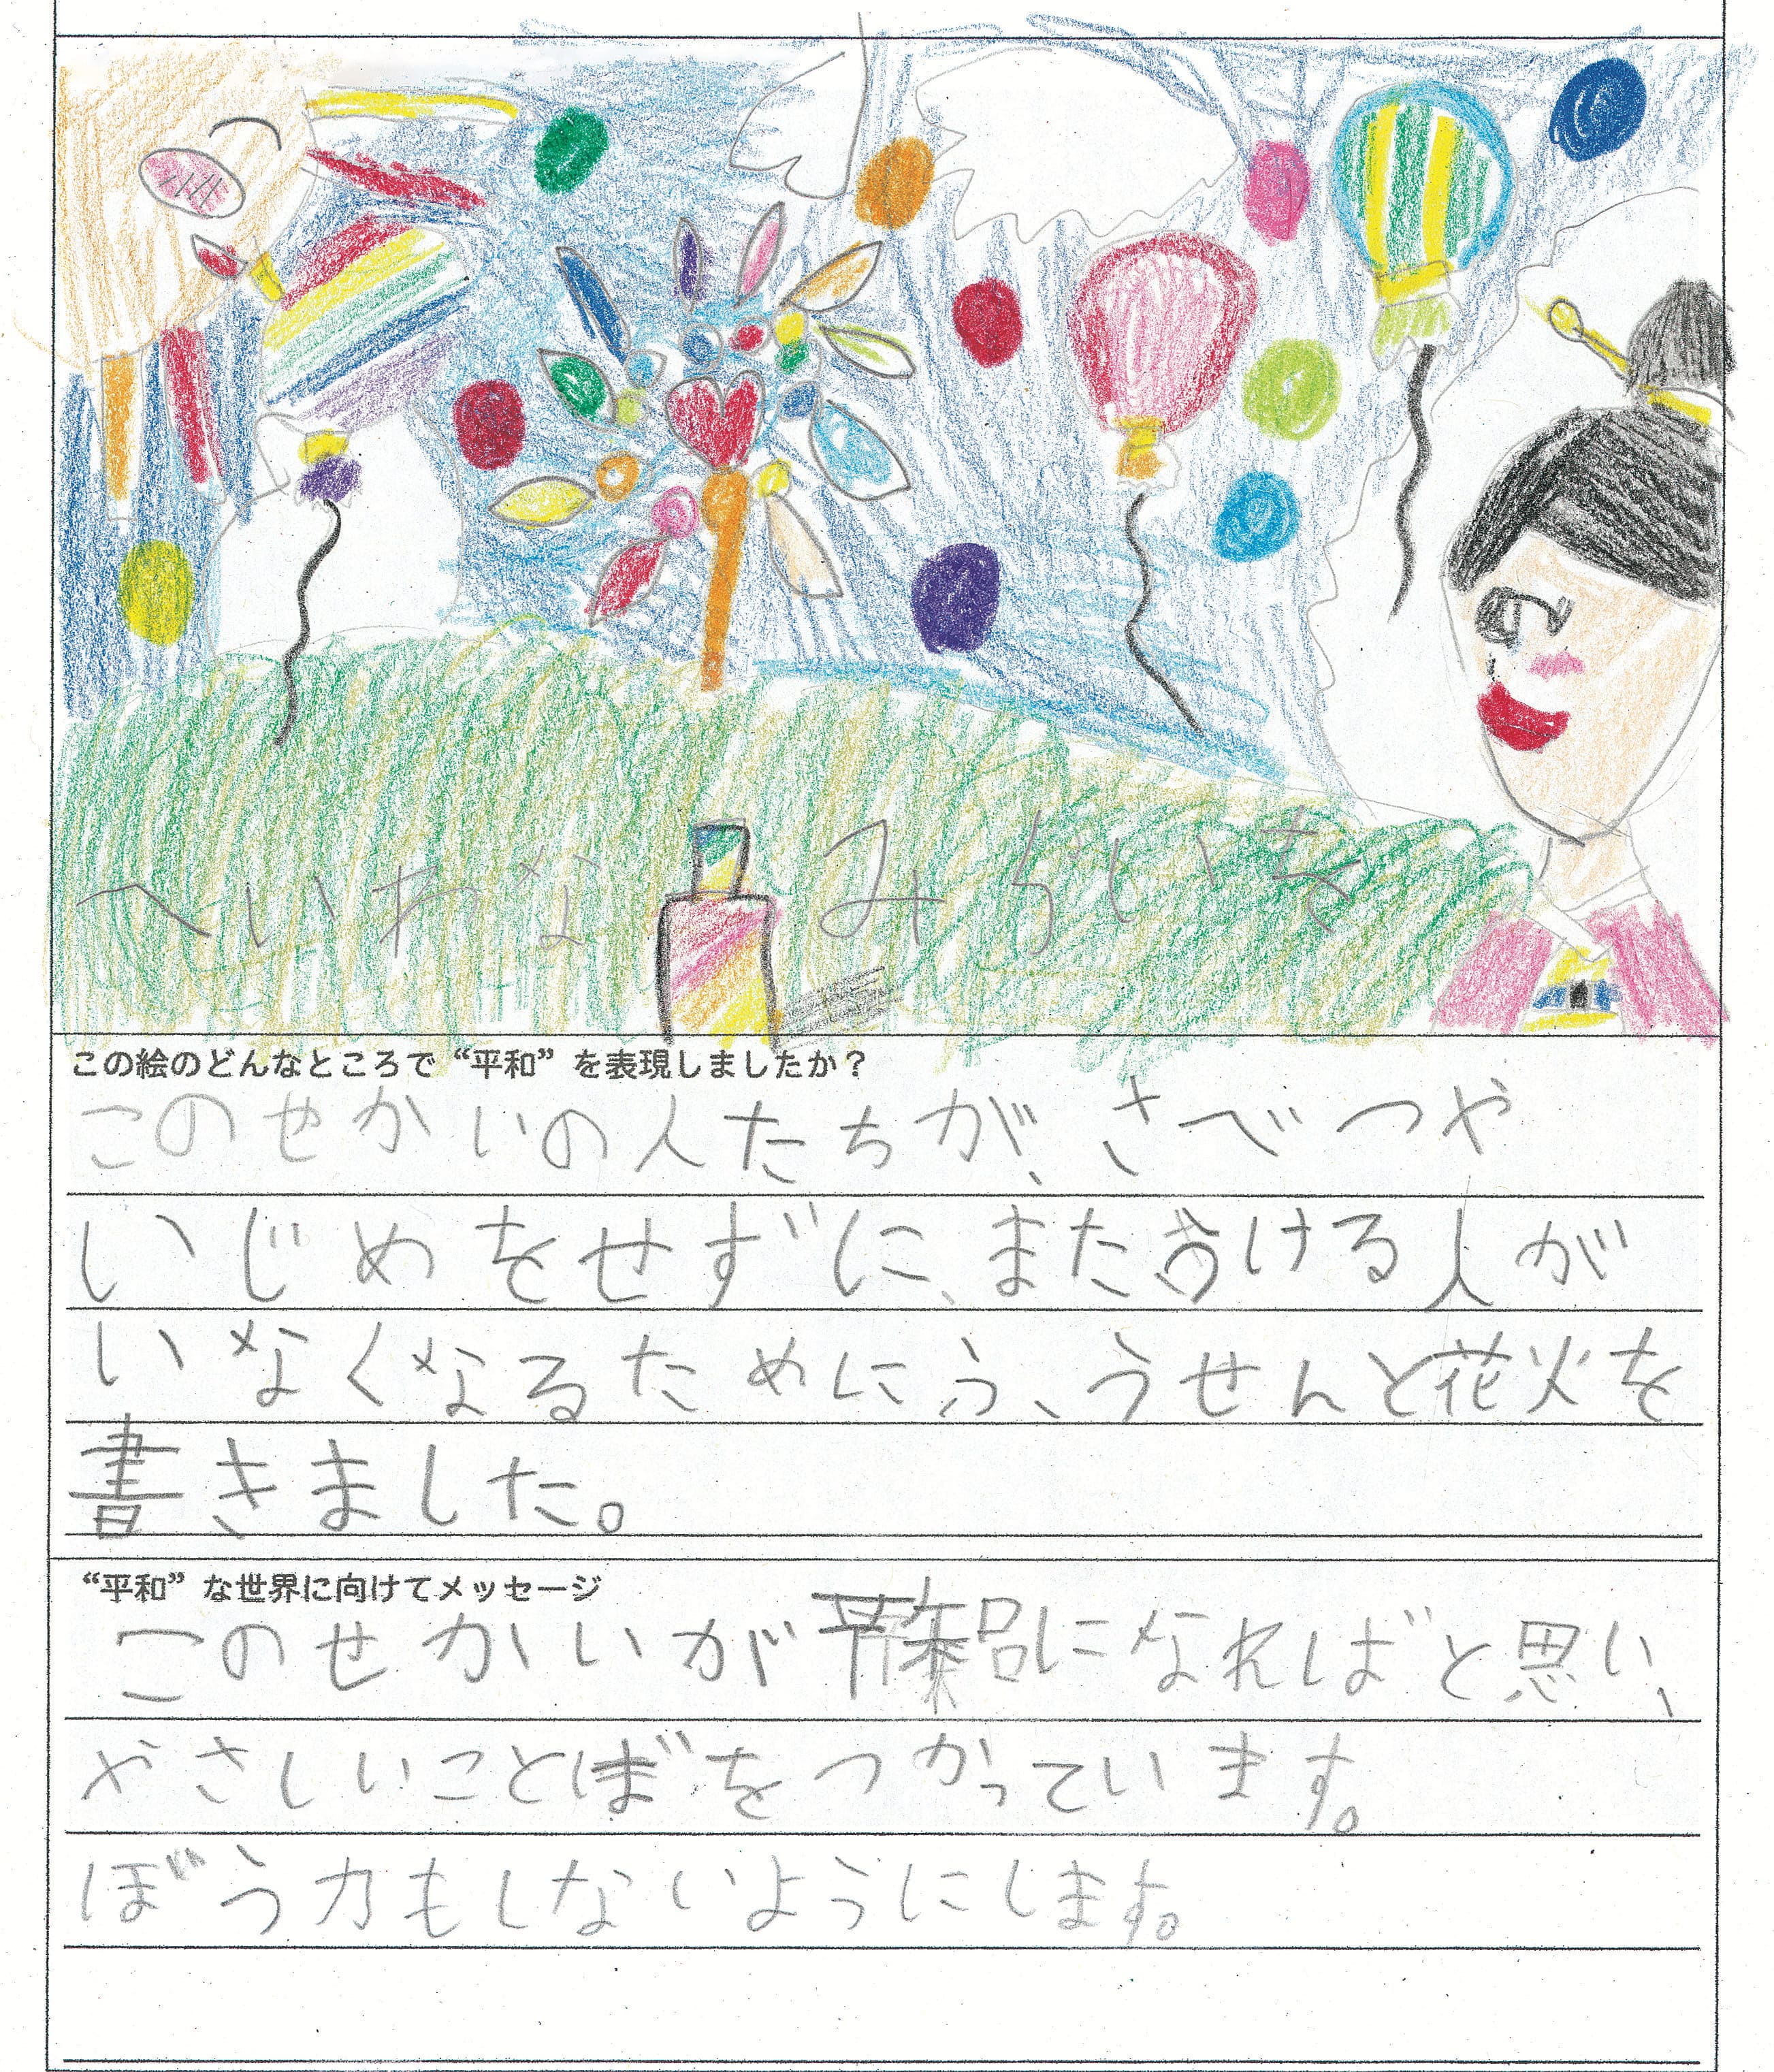 へいわな みらいを
この絵のどんなところで“平和”を表現しましたか？
このせかいの人たちが、さべつや
いじめをせずに、またうける人が
いなくなるためにふ、うせんと花火を
書きました。
“平和”な世界に向けてメッセージ
このせかいが平和になればと思い、
やさしいことばをつかっています。
ぼう力もしないようにします。